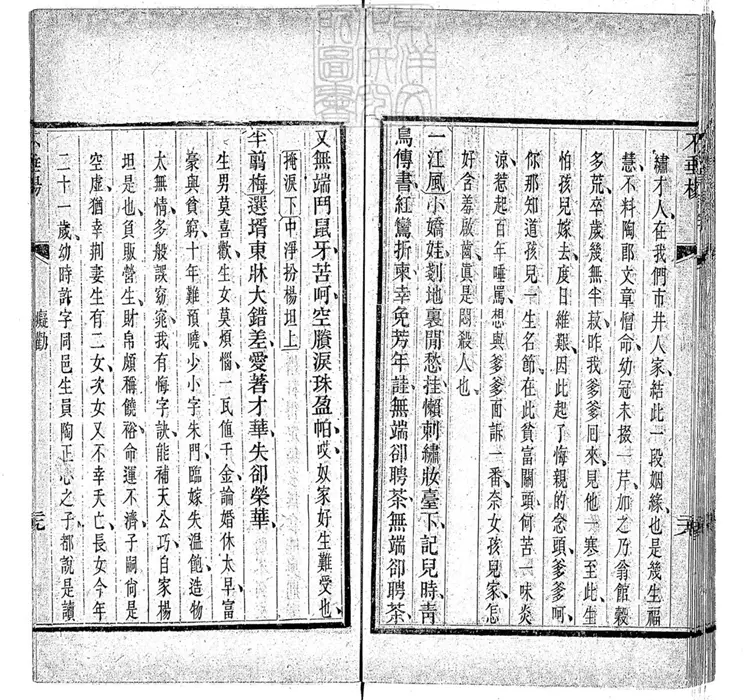 繡才人在我們市井人家結此一段姻緣也是幾生福
慧不料陶郎文章憎命幼冠未掇一芹加之乃翁館穀
多荒卒歲幾無半菽昨我爹爹囘來見他一寒至此生
怕孩兒嫁去度日維艱因此起了悔親的念頭爹爹呵
你那知道孩兒一生名節在此貧富關頭何苦一味炎
涼惹起百年唾罵想與爹爹面訴一番奈女孩兒家怎
好含羞啟齒真是悶殺人也
一江風小嬌娃剗地裏閒愁挂懶刺繡妝臺下記兒時青
鳥傳書紅鸞折柬幸免芳年詿無端卻聘茶無端卻聘茶
又無端鬥鼠牙苦呵空賸淚珠盈帕哎奴家好生難受也
掩淚下中淨扮楊坦上
半翦梅選壻東牀大錯差愛著才華失卻榮華
生男莫喜歡生女莫煩惱一瓦値千金論婚休太早富
豪與貧窮十年難預曉少小字朱門臨嫁失温飽造物
太無情多般誤窈窕我有悔字訣能補天公巧自家楊
坦是也負販營生財帛頗稱饒裕命運不濟子嗣尙是
空虛猶幸荆妻生有二女次女又不幸夭亡長女今年
二十一歲幼時許字同邑生員陶正心之子都說是讀
癡勸